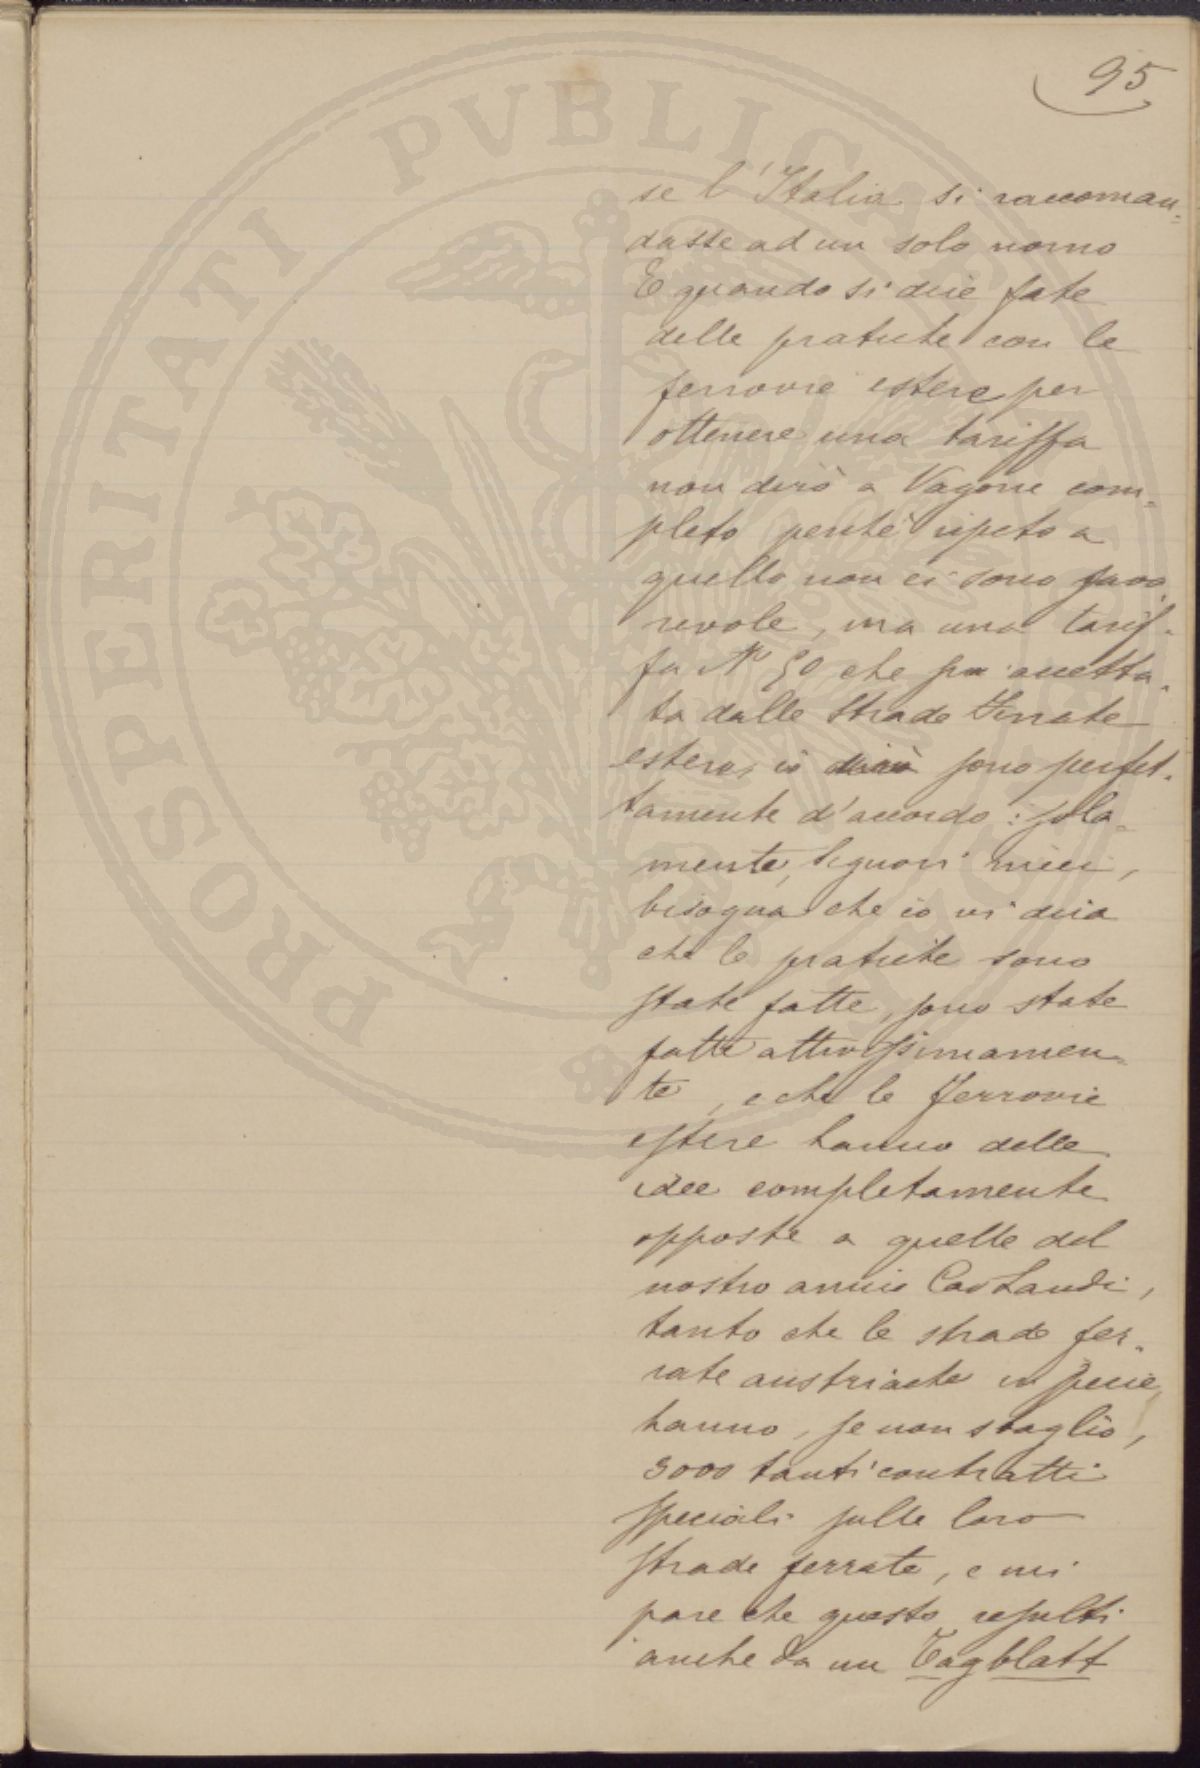 95
se l'Italia si raccoman=
dasse ad un solo uomo
E quando si dice fate
delle pratiche con le
ferrovie estere per
ottenere una tariffa
non dirò a Vagone com=
pleto perché ripeto a
quello non ci sono favo=
revole, ma una tarif=
fa N° 50 che sia accetta=
ta dalle Strade Ferrate
estere, io dirò sono perfet=
tamente d'accordo: sola=
mente, Signori miei,
bisogna che io vi dica
che le pratiche sono
state fatte, sono state
fatte attivissimamen=
te, e che le ferrovie
estere hanno delle
idee completamente
opposte a quelle del
nostro amico Cav Landi,
tanto che le strade fer=
rate austriache in specie,
hanno, se non sbaglio,
3000 tanti contratti
speciali sulle loro
strade ferrate, e mi
pare che questo resulti
anche da un Tagblatt
PROSPERITATI PVBLICAE